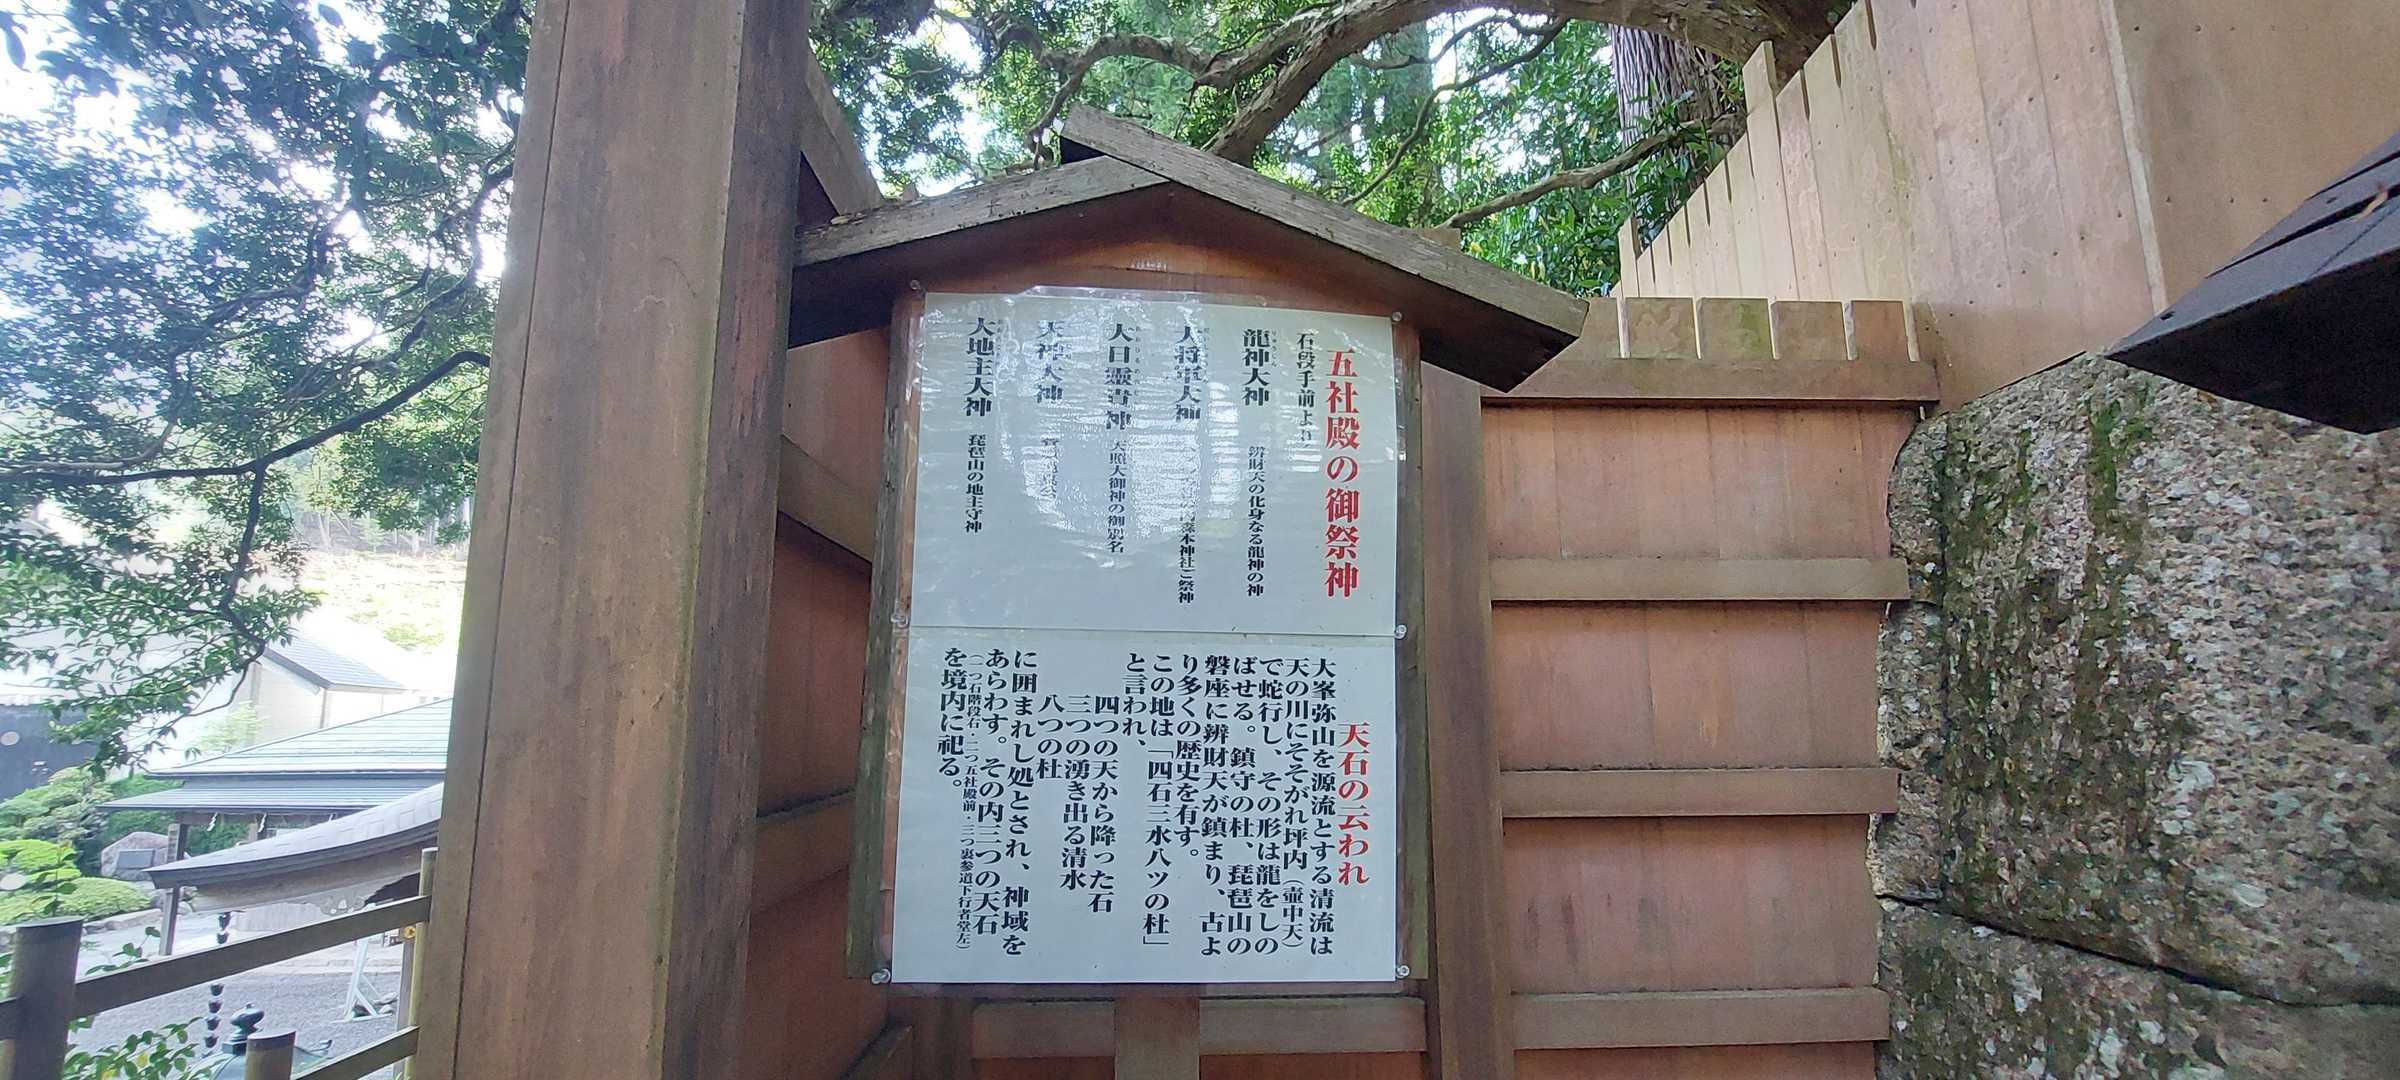 五社殿の御祭神
石段手前より
龍神大神 辨財天の化身なる龍神の神
大将軍大神 神社ご祭神
大日霊貴神 天照大御神の御別名
天神大神
大地主大神 琵琶山の地主守神
天石の云われ
大峯弥山を源流とする清流は
天の川にそそがれ坪内（壷中天）
で蛇行し、その形は龍をしの
ばせる。鎮守の杜、琵琶山の
磐座に辨財天が鎮まり、古よ
り多くの歴史を有す。
この地は「四石三水八ツの杜」
と言われ、
四つの天から降った石
三つの湧き出る清水
八つの杜
に囲まれし処とされ、神域を
あらわす。その内三つの天石
（一つ石階段右・二つ五社殿前・三つ裏参道下行者堂左）
を境内に祀る。